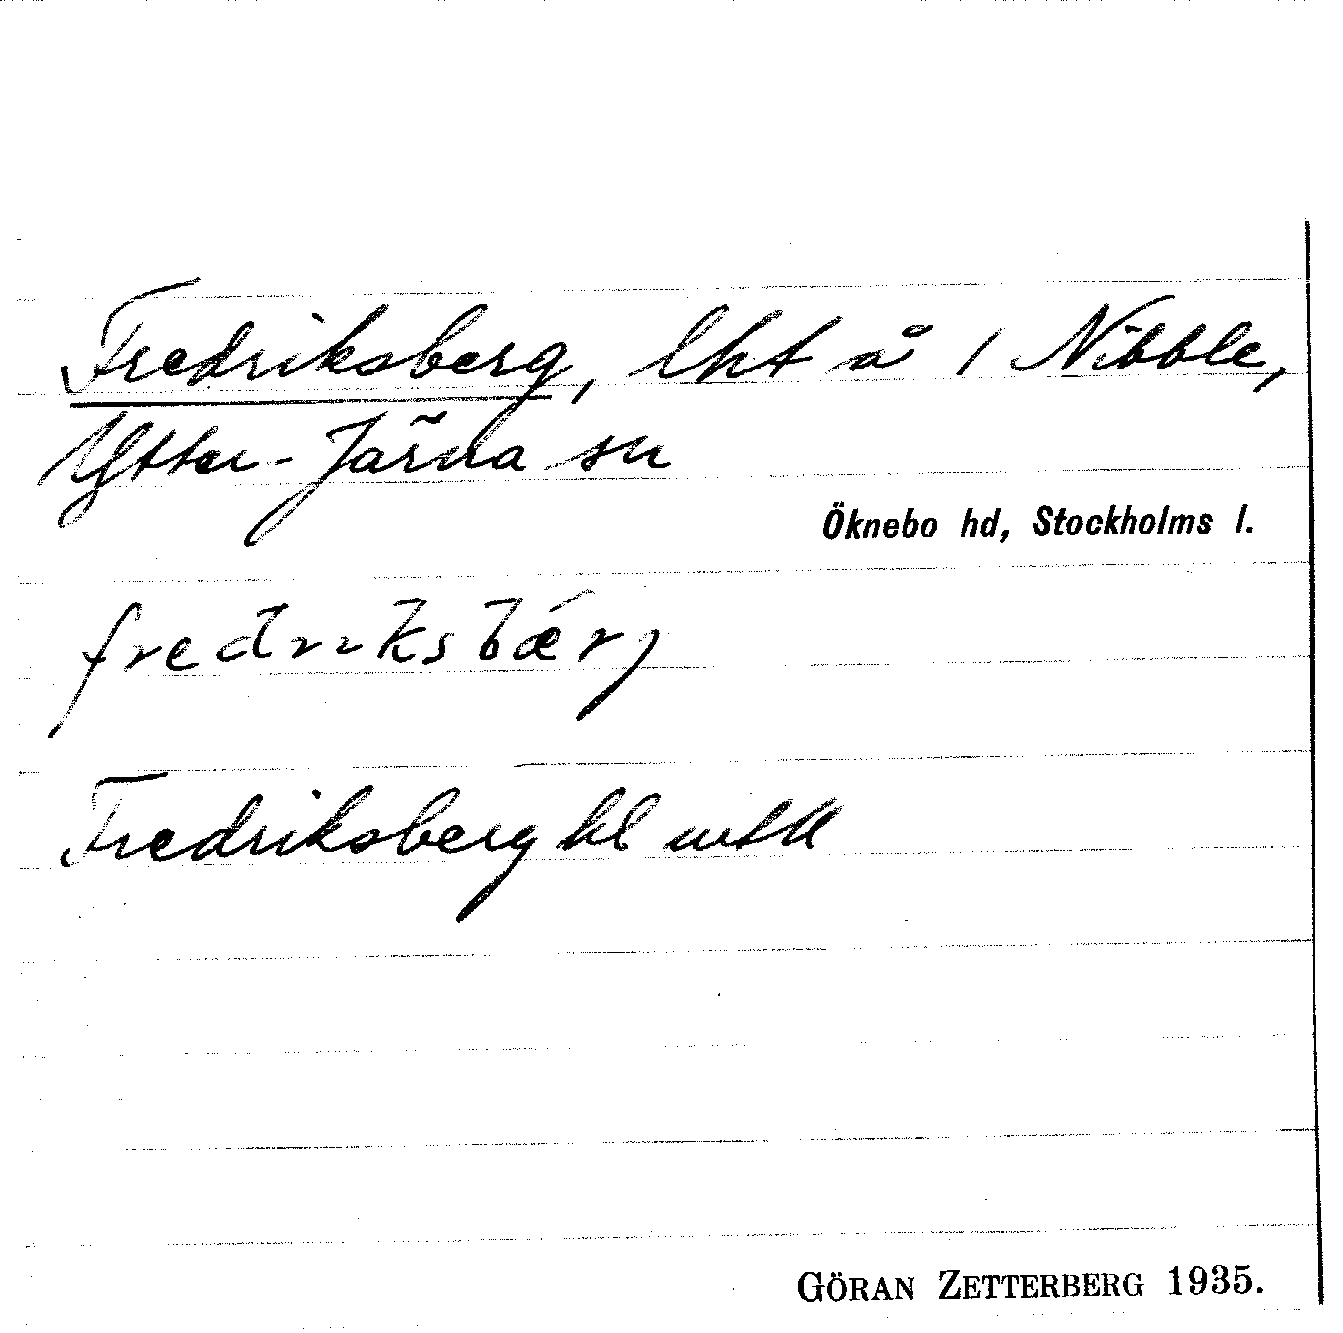 Fredriksberg, lht å 1 Nibble,
Ytter-Järna sn
Öknebo hd, Stockholms l.
fredriksbǽrj
Fredriksberg hl
GÖRAN ZETTERBERG 1935.